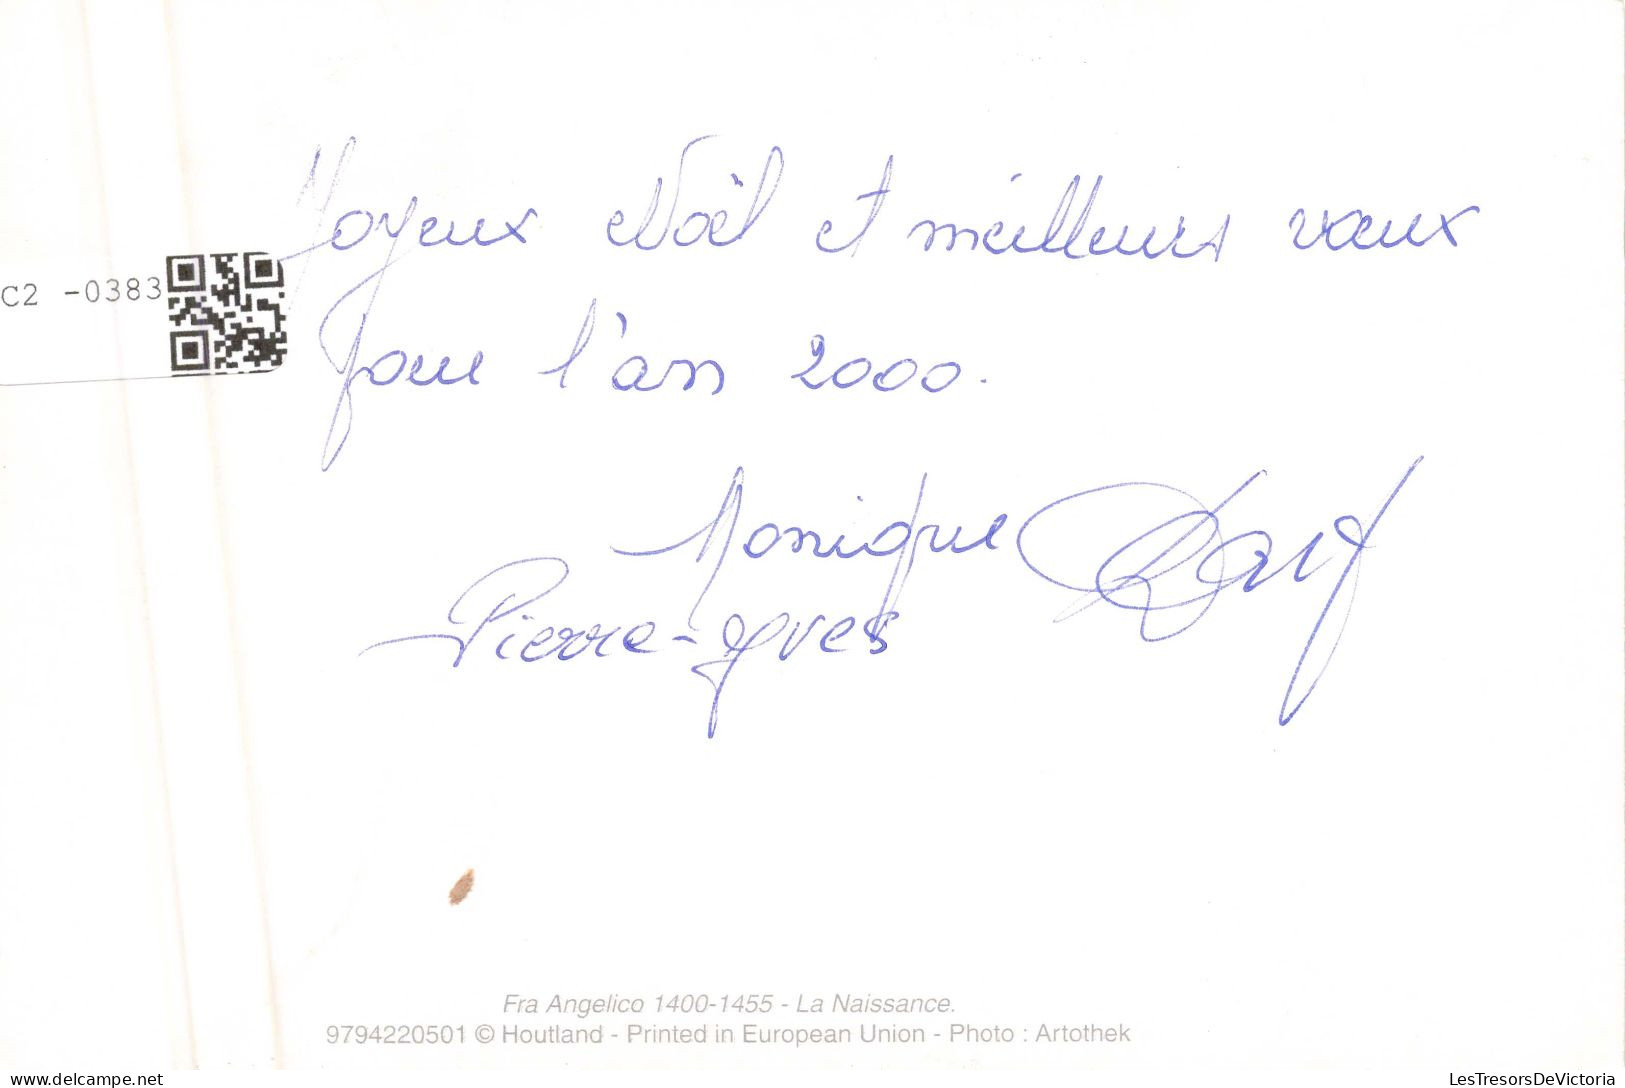 Joyeux Noël et meilleurs vœux
pour l'an 2000.
Monique
Pierre-Yves
C2 -0383
Fra Angelico 1400-1455 - La Naissance.
9794220501 © Houtland - Printed in European Union - Photo : Artothek
delcampe.net
LesTresorsDeVictoria